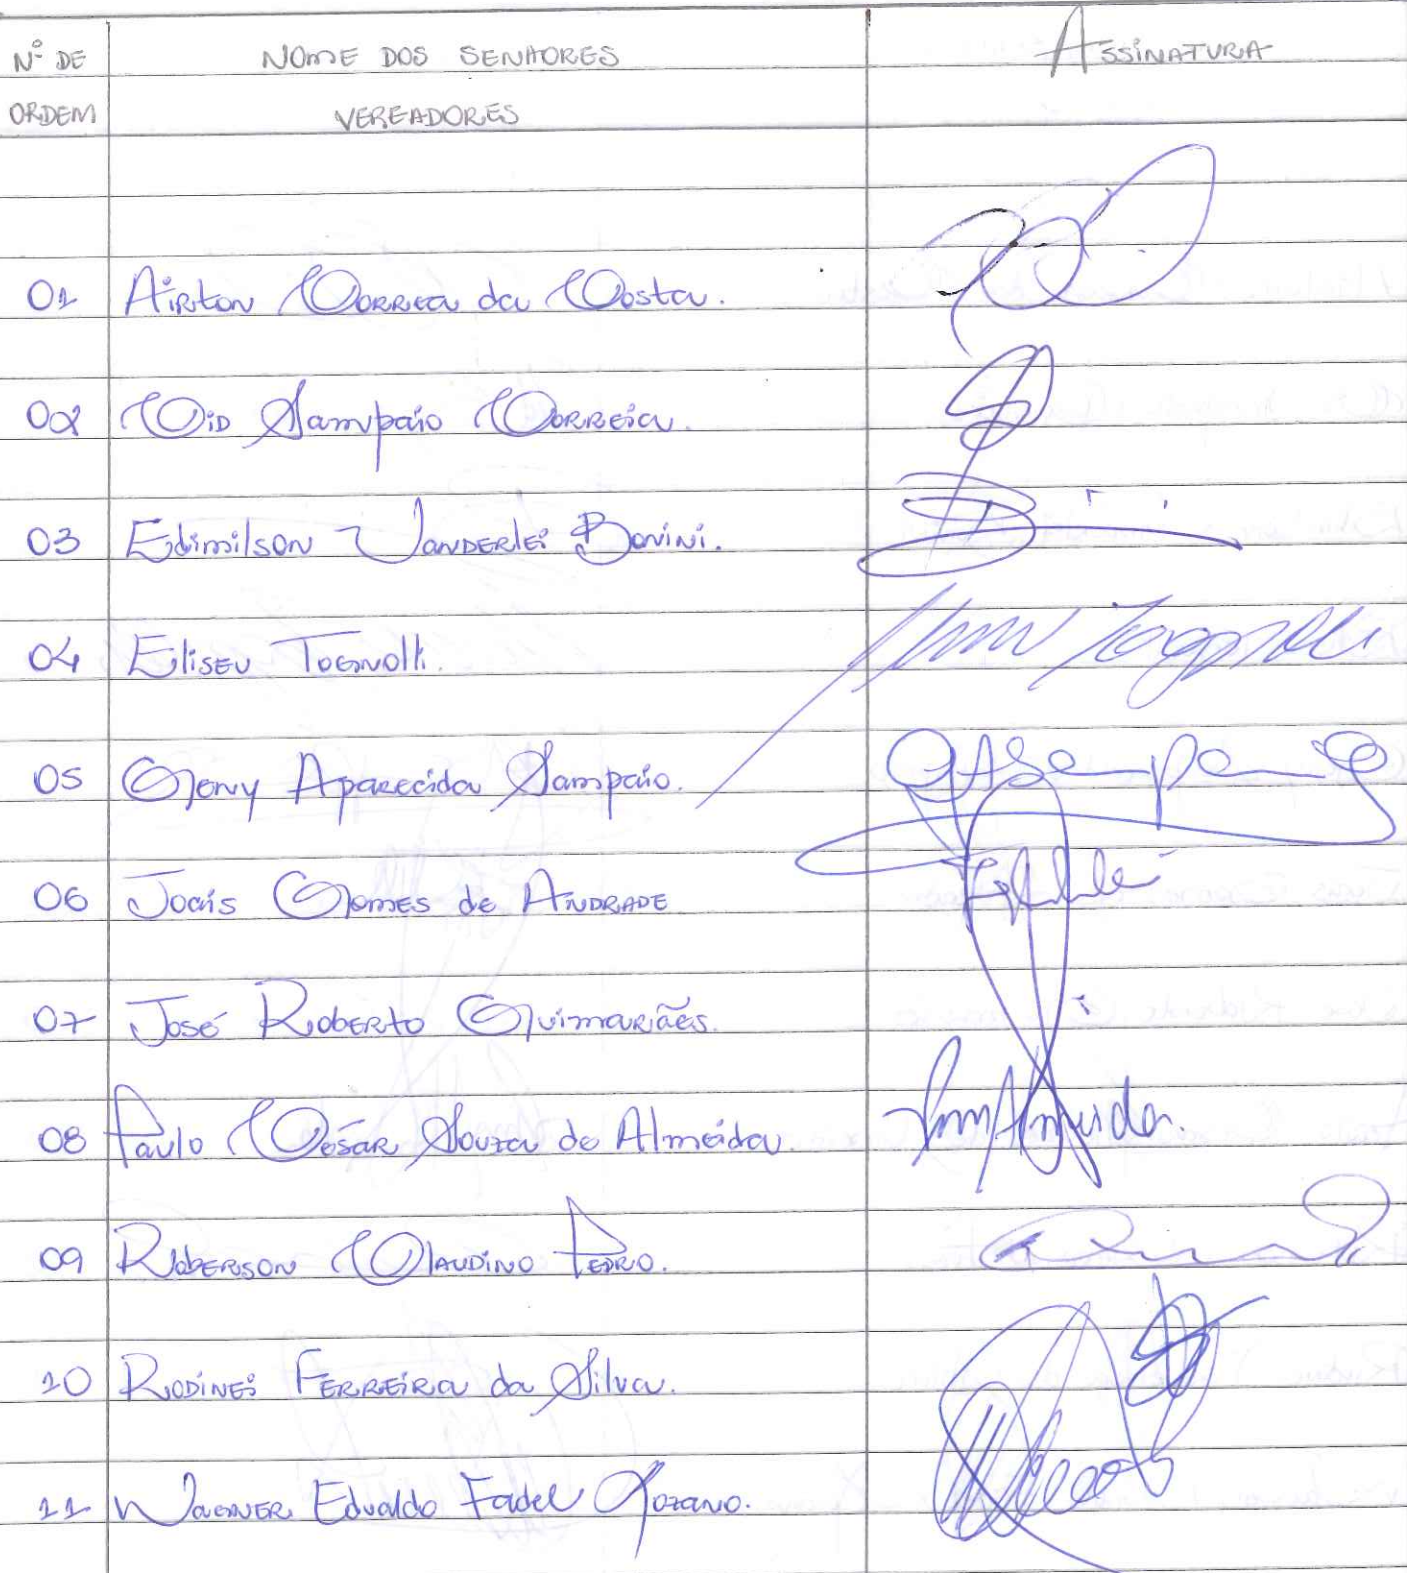 Nº DE NOME DOS SENHORES ASSINATURA
ORDEM VEREADORES
01 Airton Correa da Costa.
02 Cid Sampaio Correia.
03 Edimilson Vanderlei Bonini.
04 Eliseu Tognolli.
05 Geny Aparecida Sampaio. GASampaio
06 Joais Gomes de Andrade
07 José Roberto Guimarães.
08 Paulo César Souza de Almeida. Almeida.
09 Roberson Claudino Pedro.
10 Rodinei Ferreira da Silva.
11 Wagner Edvaldo Fadel Lozano.